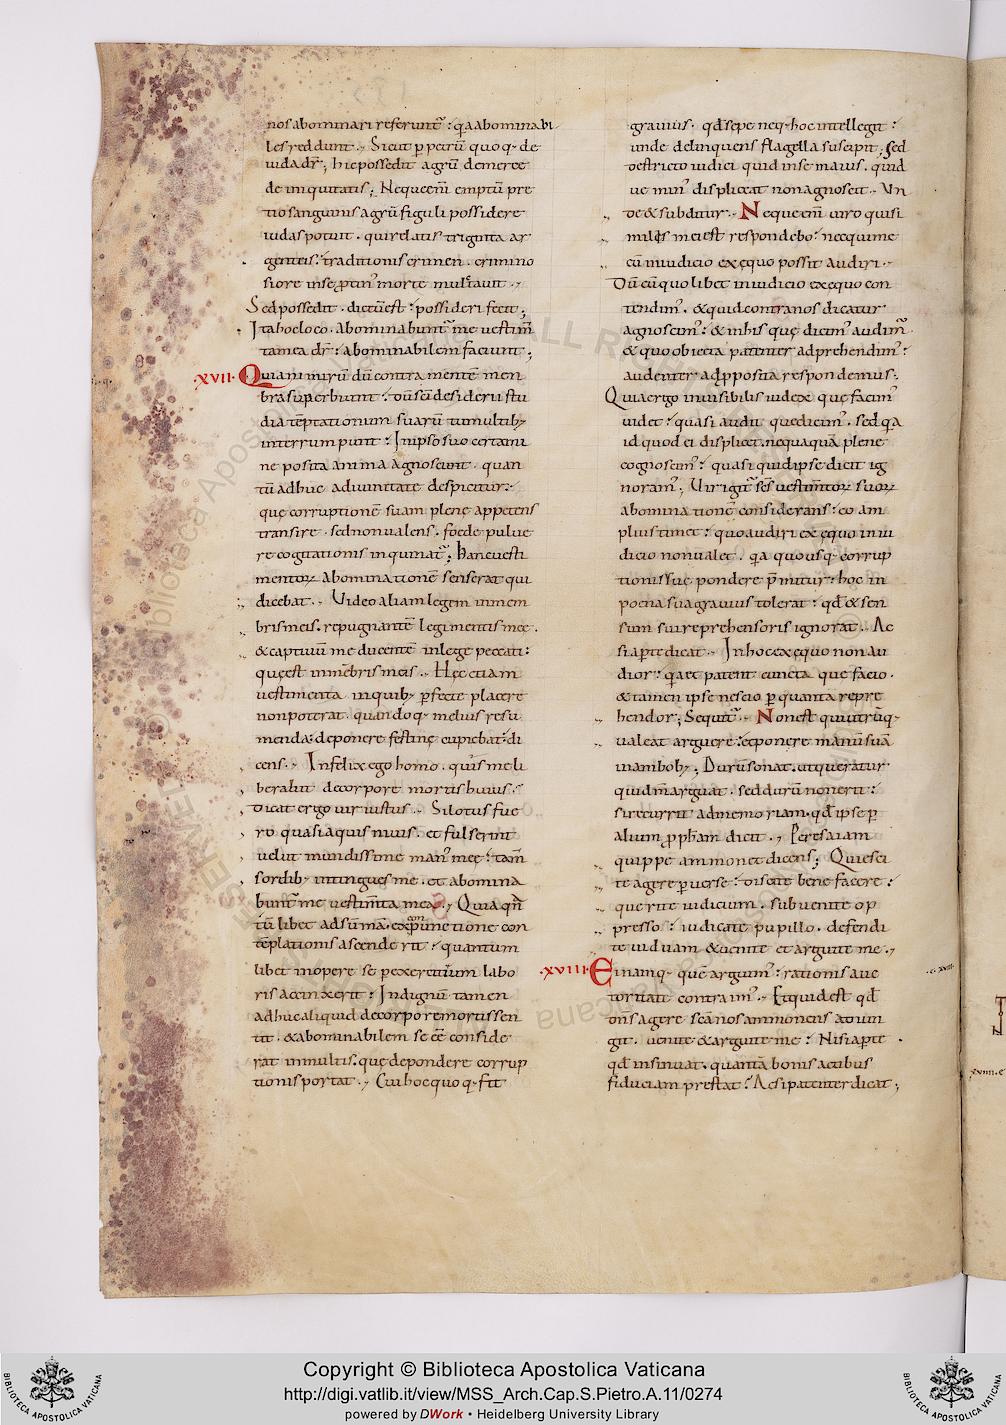 nos abominari referunt᷒ : q̇a abominabi
les reddunt ., Sicut ꝑ petrū quoq· de
iuda dr̄ ; hic possedit agrū de merce
de iniquitatis ; Neque enī emptū pre
tio sanguinis agrū figuli possidere
iudas potuit . qui relatis triginta ar
genteis : traditionis crimen . crimino
siore in se ꝓtin' morte multauit .,
Sed possedit . dictū est : possideri fecit ;
Ita hoc loco . abominabunt᷒ me uestim̄
ta mea dr̄ : abominabilem faciunt ;
·XVII· Quia nimirū dū contra mentē mem
bra superbiunt : dū sc̄i desiderii stu
dia tēptationum suarū tumultib;
interrumpunt : In ipso suo certami
ne posita anima agnoscunt . quan
tū adhuc a diuinitate despicitur :
quę corruptionē suam plene appetens
transire . sed non ualens . foede pulue
re cogitationis inquinat᷒ ; hanc uesti
mentoꝝ abominationē senserat qui
dicebat ., Video aliam legem in mem
bris meis . repugnantē legi mentis meę .
& captiuū me ducentē in lege peccati :
quę est in mēbris meis ., Hęc etiam
uestimenta in quib; ꝑfecte placere
non poterat . quandoq· melius resu
menda : deponere festine cupiebat : di
cens ., Infelix ego homo . quis me li
berabit de corpore mortis huius .,
Dicat ergo uir iustus ., Si lotus fue
ro quasi aquis niuis . et fulserint
uelut mundissimę man' meę : tam̄
sordib; intingues me . et abomina
bunt᷒ me uestim̄ta mea ., Quia qn̄
tū libet ad sūmā . exꝑunctione con
tēplationis ascenderit : quantum
libet in operę se ꝑ exercitium labo
ris accinxerit : Indignū tamen
adhuc aliquid de corpore mortis sen
tit . & abominabilem se eē conside
rat in multis . quę de pondere corrup
tionis portat ., Cui hoc quoq· fit
grauius . qd̄ sepe neq· hoc intellegit :
unde delinquens flagella suscipit ; Sed
destricto iudici quid in se maius . quid
ue min' displiceat non agnoscit ., Un
de & subditur ., Neque enī uiro qui si
milis mei est respondebo : nec qui me
cū in iudicio ex ęquo possit audiri .,
Dū cū quolibet in iudicio ex ęquo con
tendim' . & quid contra nos dicatur
agnoscim' : & in his quę dicim' audim᷒ .
& quo obiecta patent᷒ adprehendim' :
audenter ad ꝓposita respondemus :
Quia ergo inuisibilis iudex quę facim'
uidet : quasi audit quę dicim' . sed q̇a
id quod ei displicet . nequaquā plene
cognoscim' : quasi quid ipse dicit ig
noram' ; Vir igit᷒ sc̄s uestim̄toꝝ suoꝝ
abominationē considerans : eo am
plius timet : quo audiri ex ęquo in iu
dicio non ualet . q̇a quousq· corrup
tionis suę pondere p̄mitur : hoc in
poena sua grauius tolerat : qd̄ & sen
sum sui reprehensoris ignorat ., Ac
si aꝑte dicat ., In hoc ex ęquo non au
dior : q̇a et patent cuncta quę facio .
& tamen ipse nescio ꝑ quanta repre
hendor ; Sequit᷒ ., Non est qui utrūq·
ualeat arguere : et ponere manū suā
in ambob; ; Durū sonat . ut queratur
qui dm̄ arguat . sed durū non erit :
si recurrit ad memoriam . qd̄ ipse ꝑ
alium ꝓpham dicit ., Per esaiam
quippe ammonet dicens ; Quiesci
te agere ꝑuerse : discite bene facere :
querite iudicium . subuenite op
presso : iudicate pupillo . defendi
te uiduam & uenite et arguite me .,
·XVIII· Etenamq· que arguim' : rationis auc
toritati contraim' ., Et quid est qd̄
dn̄s agere sc̄a nos ammonens adiun
git . uenite & arguite me : Nisi aꝑte .
qd̄ insinuat . quantā bonis actibus
fiduciam prestat : Ac si patenter dicat ;
Copyright © Biblioteca Apostolica Vaticana
http://digi.vatlib.it/view/MSS_Arch.Cap.S.Pietro.A.11/0274
powered by DWork • Heidelberg University Library
BIBLIOTECA APOSTOLICA VATICANA
BIBLIOTECA APOSTOLICA VATICANA